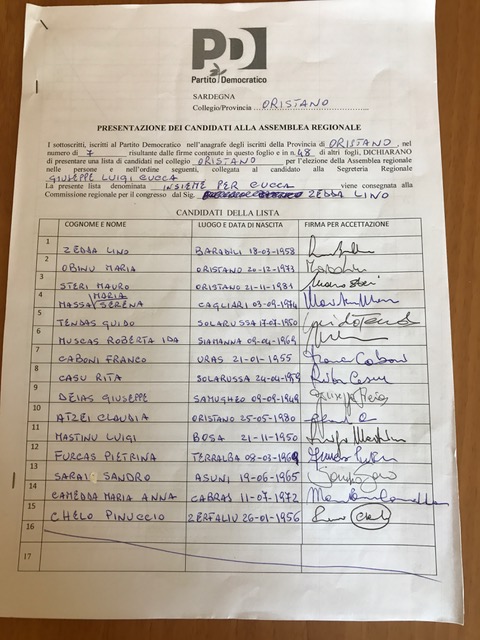 PD
Partito Democratico
SARDEGNA
Collegio/Provincia ORISTANO
PRESENTAZIONE DEI CANDIDATI ALLA ASSEMBLEA REGIONALE
I sottoscritti, iscritti al Partito Democratico nell'anagrafe degli iscritti della Provincia di ORISTANO, nel
numero di 7 risultante dalle firme contenute in questo foglio e in n. 48 di altri fogli, DICHIARANO
di presentare una lista di candidati nel collegio ORISTANO per l'elezione della Assemblea regionale
nelle persone e nell'ordine seguenti, collegata al candidato alla Segreteria Regionale
GIUSEPPE LUIGI CUCCA
La presente lista denominata INSIEME PER CUCCA viene consegnata alla
Commissione regionale per il congresso dal Sig. ZEDDA LINO
CANDIDATI DELLA LISTA
COGNOME E NOME LUOGO E DATA DI NASCITA FIRMA PER ACCETTAZIONE
1 ZEDDA LINO BARADILI 18-03-1958
2 OBINU MARIA ORISTANO 20-12-1973
3 STERI MAURO ORISTANO 21-11-1981 Mauro Steri
4 MASSA MARIA SERENA CAGLIARI 03-09-1974
5 TENDAS GUIDO SOLARUSSA 17-07-1950 Guido Tendas
6 MUSCAS ROBERTA IDA SIAMANNA 09-04-1969
7 CABONI FRANCO URAS 21-01-1955 Franco Caboni
8 CASU RITA SOLARUSSA 24-04-1959 Rita Casu
9 DEIAS GIUSEPPE SAMUGHEO 09-09-1949
10 ATZEI CLAUDIA ORISTANO 25-05-1980
11 MASTINU LUIGI BOSA 21-11-1950 Luigi Mastinu
12 FURCAS PIETRINA TERRALBA 03-03-1969
13 SARAI SANDRO ASUNI 19-06-1965
14 CAMEDDA MARIA ANNA CABRAS 11-07-1972
15 CHELO PINUCCIO ZERFALIU 26-01-1956
16
17